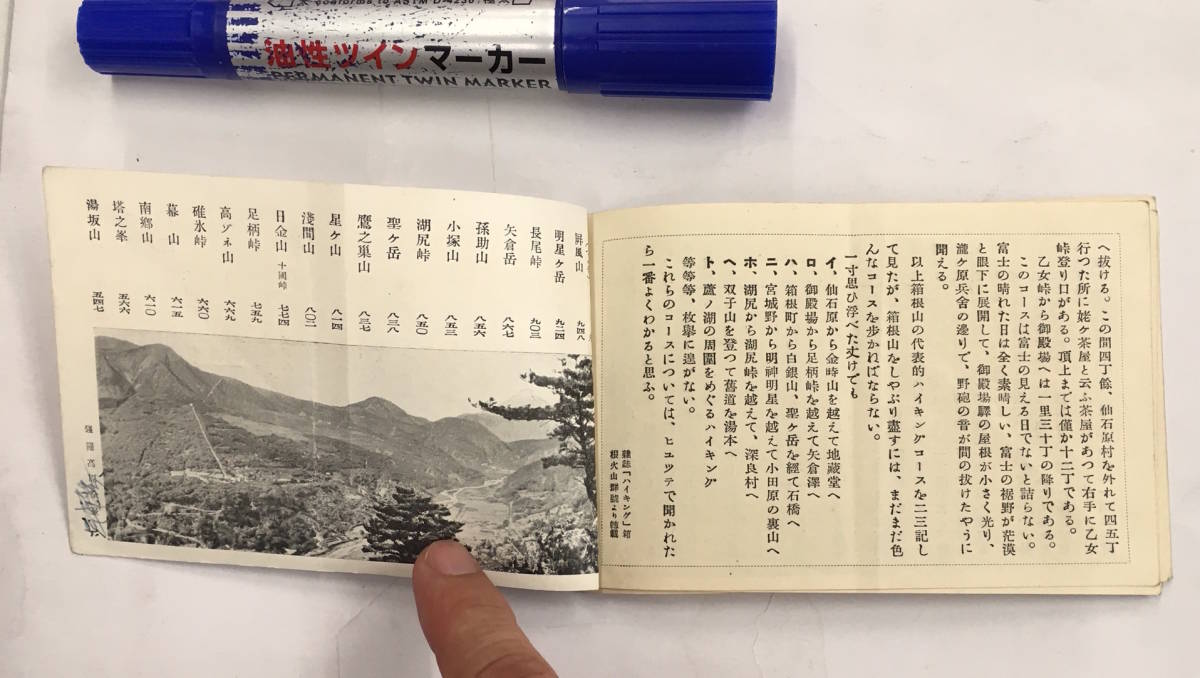 油性ツインマーカー
PERMANENT TWIN MARKER
へ抜ける。この間四丁餘、仙石原村を外れて四五丁
行つた所に姥ヶ茶屋と云ふ茶屋があつて右手に乙女
峠登り口がある。頂上までは僅か十二丁である。
乙女峠から御殿場へは一里三十丁の降りである。
このコースは富士の見える日でないと詰らない。
富士の晴れた日は全く素晴しい、富士の裾野が茫漠
と眼下に展開して、御殿場驛の屋根が小さく光り、
瀧ヶ原兵舎の邊りで、野砲の音が間の抜けたやうに
開える。
以上箱根山の代表的ハイキングコースを二三記し
て見たが、箱根山をしやぶり盡すには、まだまだ色
んなコースを歩かねばならない。
一寸思ひ浮べた丈けでも
イ、仙石原から金時山を越えて地蔵堂へ
ロ、御殿場から足柄峠を越えて矢倉澤へ
ハ、箱根町から白銀山、聖ヶ岳を經て石橋へ
ニ、宮城野から明神明星を越えて小田原の裏山へ
ホ、湖尻から湖尻峠を越えて、深良村へ
ヘ、双子山を登つて舊道を湯本へ
ト、蘆ノ湖の周圍をめぐるハイキング
等等等、枚擧に遑がない。
これらのコースについては、ヒユツテで開かれた
ら一番よくわかると思ふ。
雜誌「ハイキング」箱
根火山群號より轉載
屏風山 九四八
明星ヶ岳 九二四
長尾峠 九〇三
矢倉岳 八六七
孫助山 八五六
小塚山 八五三
湖尻峠 八五〇
聖ヶ岳 八三八
鷹之巣山 八三七
星ヶ山 八一四
淺間山 八〇二
日金山 十國峠 七七四
足柄峠 七五九
高ゾネ山 六六九
碓氷峠 六六〇
幕山 六一五
南郷山 六一〇
塔之峯 五六六
湯坂山 五四七
強羅高